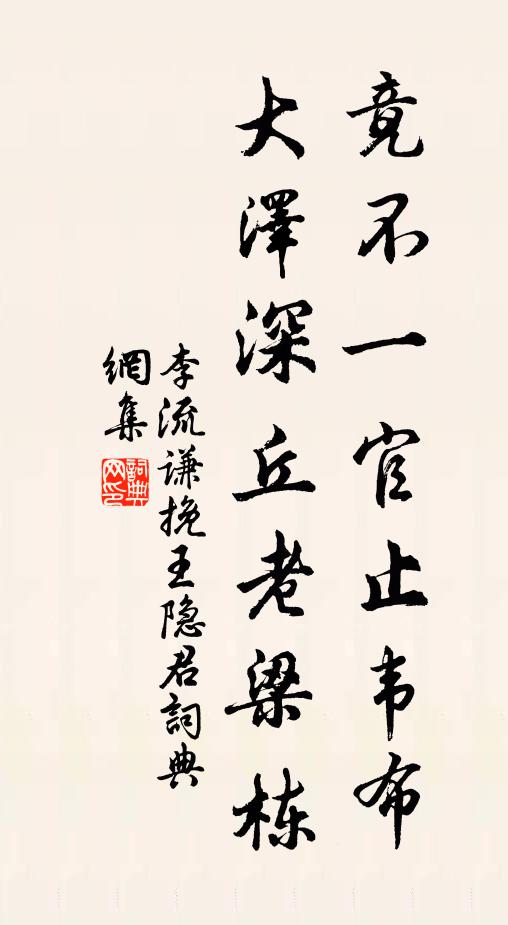 竟不一官止韦布
大澤深丘老梁栋
李流谦挽王隐君詞典
網集
詞典
网印